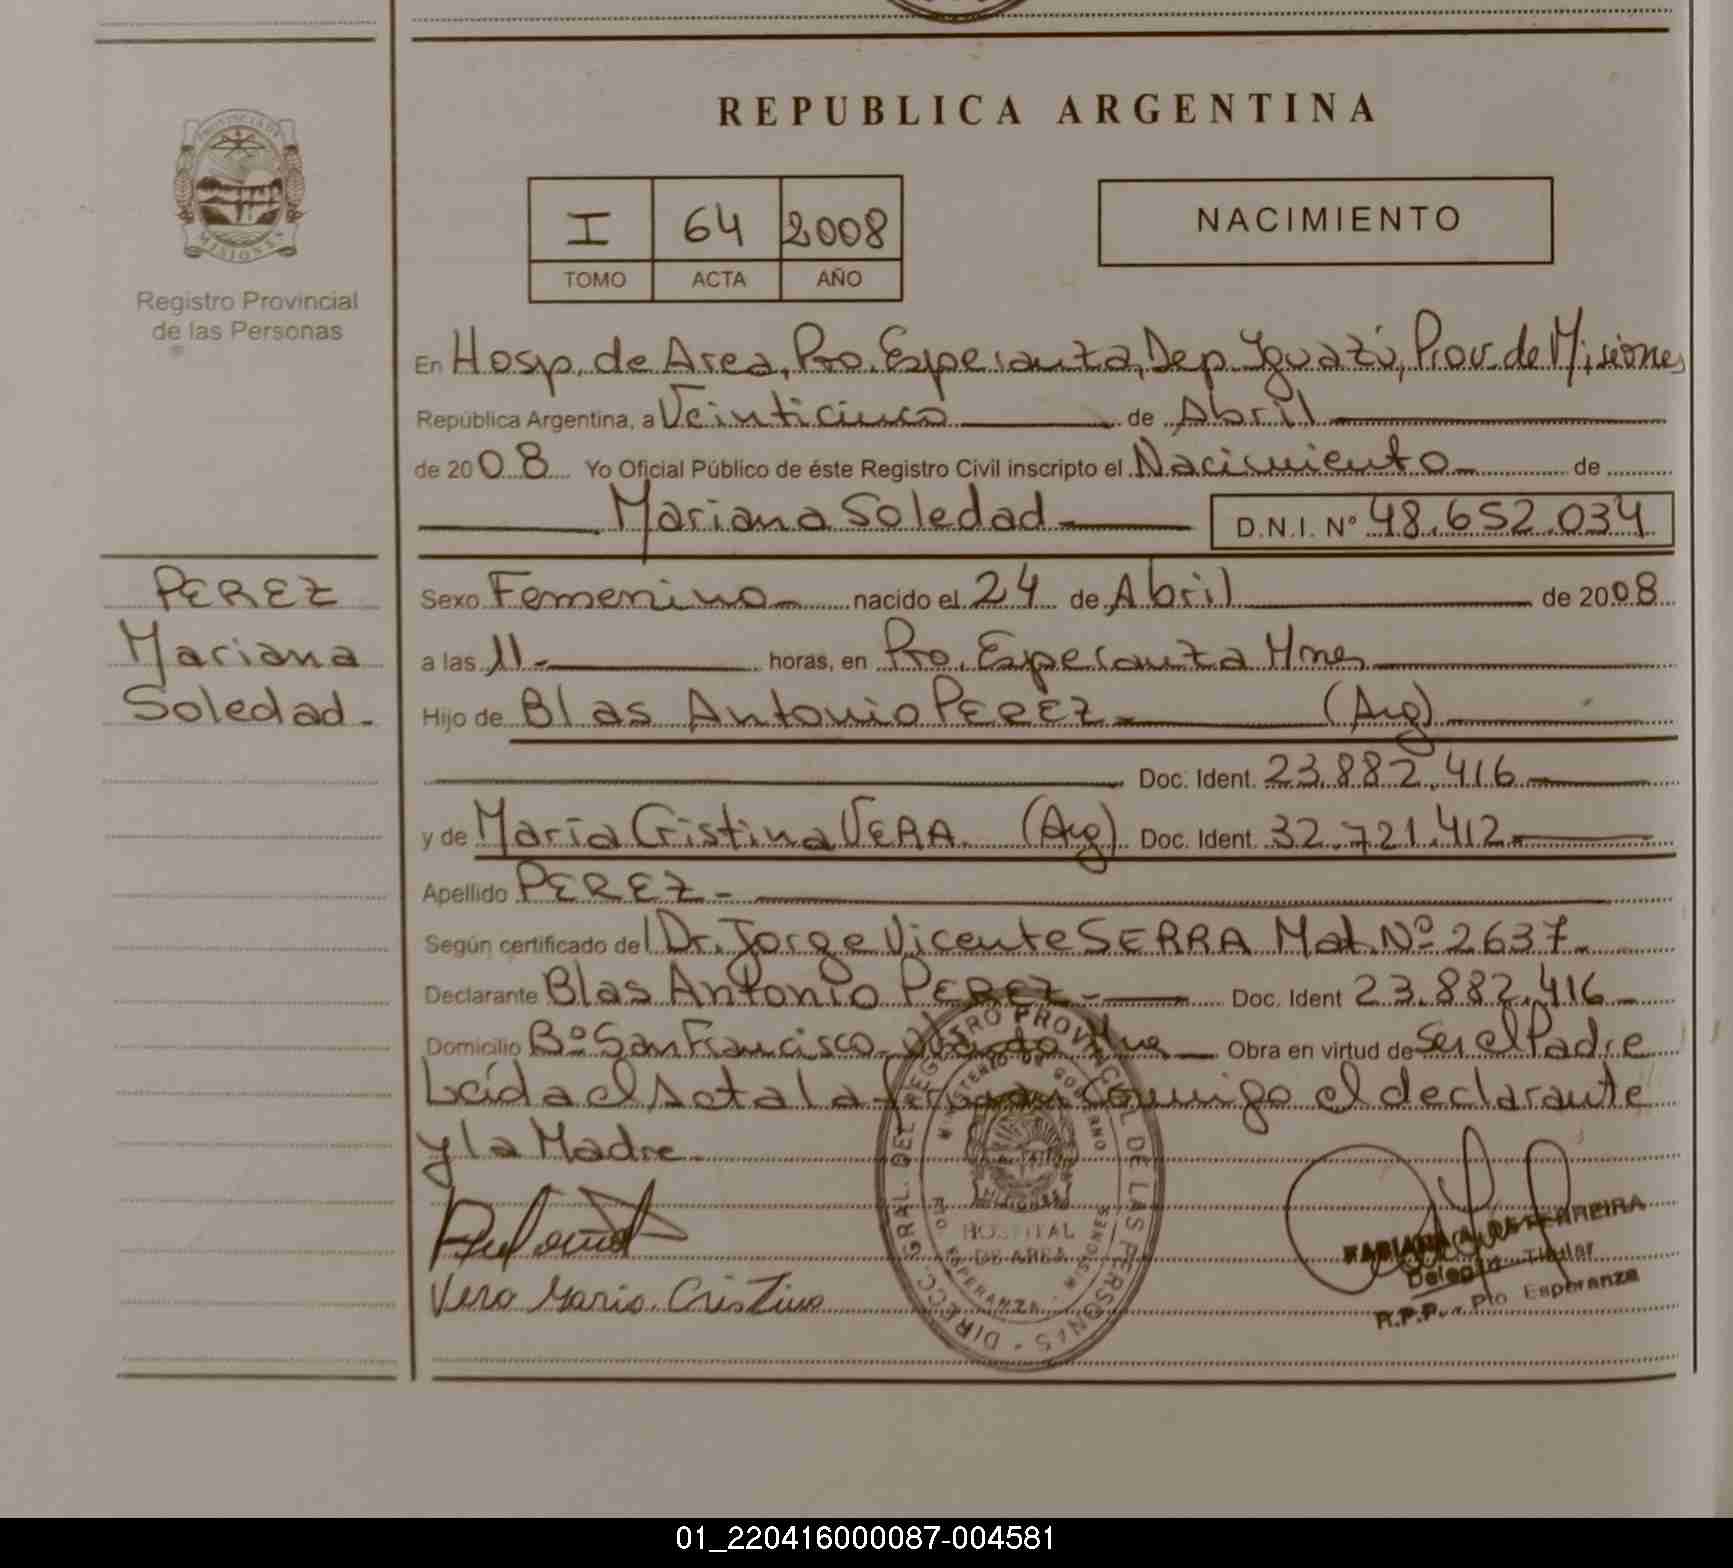 REPUBLICA ARGENTINA
PROVINCIA DE
MISIONES
Registro Provincial
de las Personas
I 64 2008
TOMO ACTA AÑO
NACIMIENTO
En Hosp. de Area, Pto. Esperanza, Dep. Iguazú, Prov. de Misiones
República Argentina, a Veinticinco de Abril
de 2008 Yo Oficial Público de éste Registro Civil inscripto el Nacimiento de
Mariana Soledad D.N.I. Nº 48.652.034
PEREZ
Mariana
Soledad.
Sexo Femenino nacido el 24 de Abril de 2008
a las 11- horas, en Pto. Esperanza Mnes
Hijo de Blas Antonio PEREZ (Arg)
Doc. Ident. 23.882.416
y de María Cristina VERA (Arg) Doc. Ident. 32.721.412
Apellido PEREZ
Según certificado del Dr. Jorge Vicente SERRA Mat. Nº 2637
Declarante Blas Antonio PEREZ Doc. Ident 23.882.416
Domicilio Bº San Francisco Obra en virtud de Ser el Padre
Leída el Acta la firman conmigo el declarante
y la Madre.
Vera Maria Cristina
DIRECC. GRAL. DEL REGISTRO PROVINCIAL DE LAS PERSONAS
MINISTERIO DE GOBIERNO
MISIONES
HOSPITAL
DE AREA
PTO ESPERANZA - MISIONES
FERREIRA
Titular
R.P.P. - Pto Esperanza
01_220416000087-004581